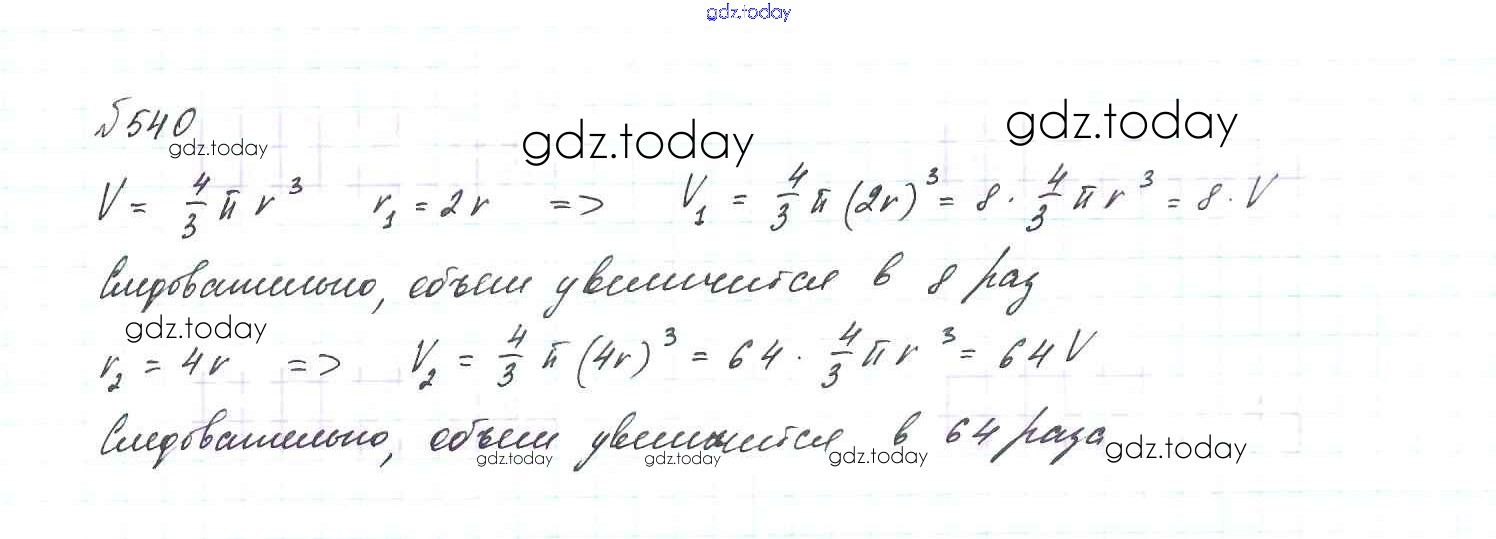 gdz.today
№540
gdz.today gdz.today gdz.today
V = 4/3 π r³ r₁ = 2r => V₁ = 4/3 π (2r)³ = 8 · 4/3 π r³ = 8 · V
Следовательно, объем увеличится в 8 раз
gdz.today
r₂ = 4r => V₂ = 4/3 π (4r)³ = 64 · 4/3 π r³ = 64 V
Следовательно, объем увеличится в 64 раза
gdz.today gdz.today gdz.today gdz.today